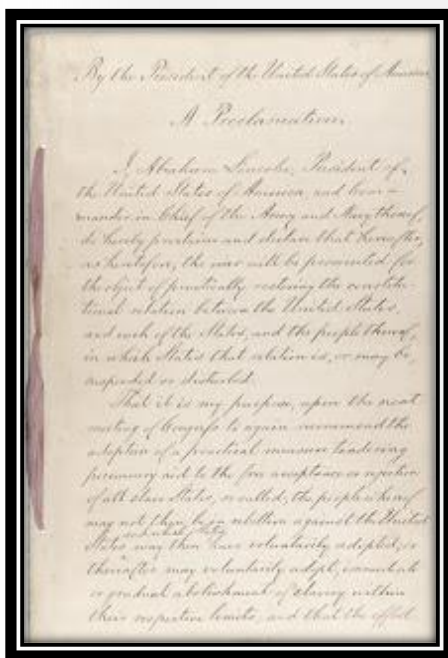 By the President of the United States of America
A Proclamation.
I, Abraham Lincoln, President of
the United States of America, and Com-
mander-in-Chief of the Army and Navy thereof,
do hereby proclaim and declare that hereafter,
as heretofore, the war will be prosecuted for
the object of practically restoring the constitu-
tional relation between the United States,
and each of the States, and the people thereof,
in which States that relation is, or may be,
suspended or disturbed.
That it is my purpose, upon the next
meeting of Congress to again recommend the
adoption of a practical measure tendering
pecuniary aid to the free acceptance or rejection
of all slave States, so called, the people whereof
may not then be in rebellion against the United
States and which States
may then have voluntarily adopted, or
thereafter may voluntarily adopt, immediate
or gradual abolishment of slavery within
their respective limits; and that the effort